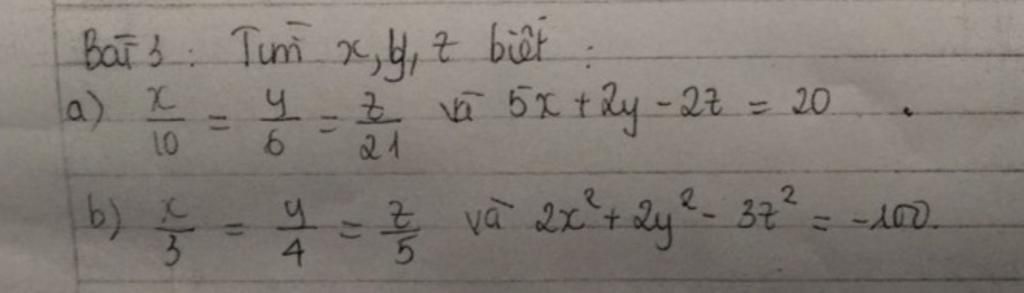 Bài 3: Tìm x, y, z biết:
a) x/10 = y/6 = z/21 và 5x + 2y - 2z = 20.
b) x/3 = y/4 = z/5 và 2x² + 2y² - 3z² = -100.